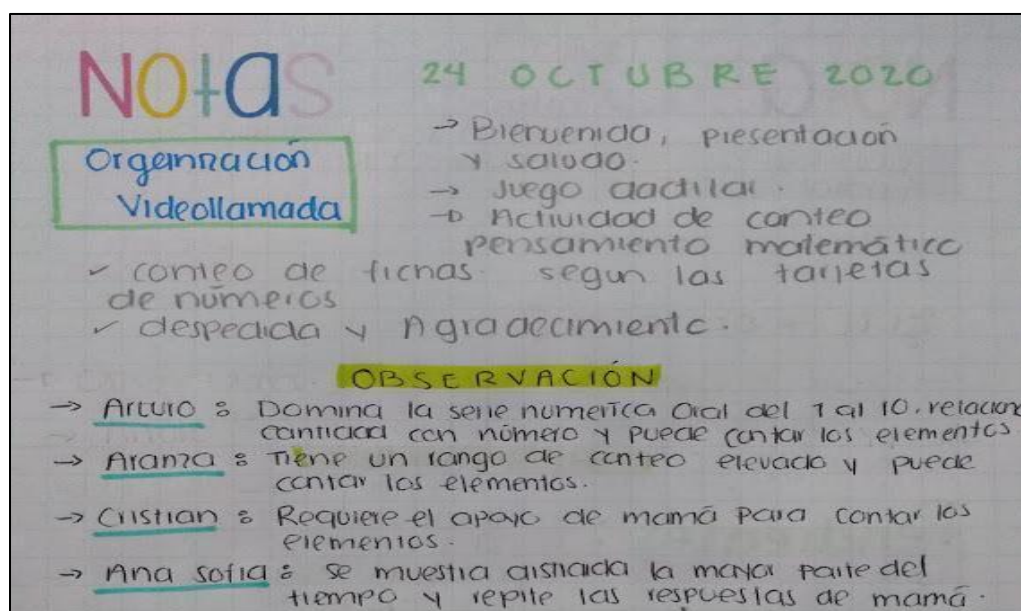 Notas
24 OCTUBRE 2020
Organización
Videollamada
→ Bienvenida, presentación
y saludo.
→ Juego dactilar.
→ Actividad de conteo
pensamiento matemático
✓ conteo de fichas según las tarjetas
de números
✓ despedida y Agradecimiento.
OBSERVACIÓN
→ Arturo: Domina la serie numerica Oral del 1 al 10. relaciona
cantidad con número y puede contar los elementos
→ Aranza: Tiene un rango de conteo elevado y puede
contar los elementos.
→ Cristian: Requiere el apoyo de mamá para contar los
elementos.
→ Ana sofia: se muestra aislada la mayor parte del
tiempo y repite las respuestas de mamá.